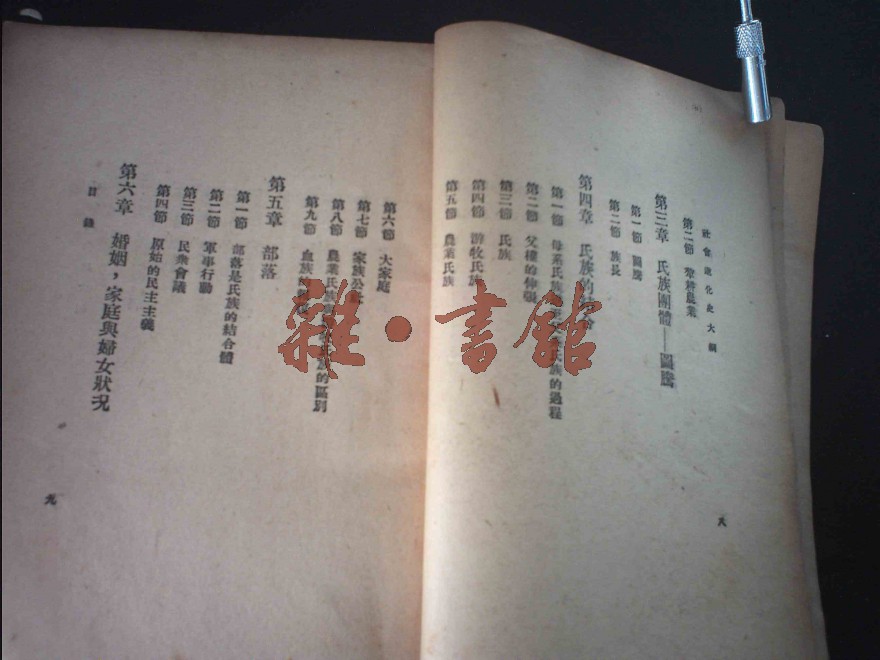 社會進化史大綱
第二節 犂耕農業
第三章 氏族團體——圖騰
第一節 圖騰
第二節 族長
第四章 氏族的
第一節 母系氏族 氏族的過程
第二節 父權的伸張
第三節 氏族
第四節 游牧氏族
第五節 農業氏族
八
第六節 大家庭
第七節 家族公
第八節 農業氏族 族的區別
第九節 血族
第五章 部落
第一節 部落是氏族的結合體
第二節 軍事行動
第三節 民衆會議
第四節 原始的民主主義
第六章 婚姻，家庭與婦女狀況
目錄
九
雜·書館